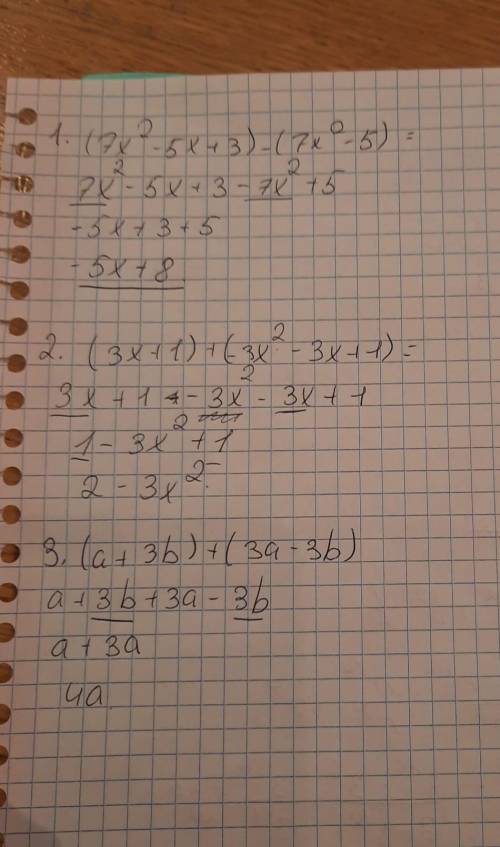 1. (7x² - 5x + 3) - (7x² - 5) =
7x² - 5x + 3 - 7x² + 5
- 5x + 3 + 5
- 5x + 8
2. (3x + 1) + (-3x² - 3x + 1) =
3x + 1 - 3x² - 3x + 1
1 - 3x² + 1
2 - 3x².
3. (a + 3b) + (3a - 3b)
a + 3b + 3a - 3b
a + 3a
4a.